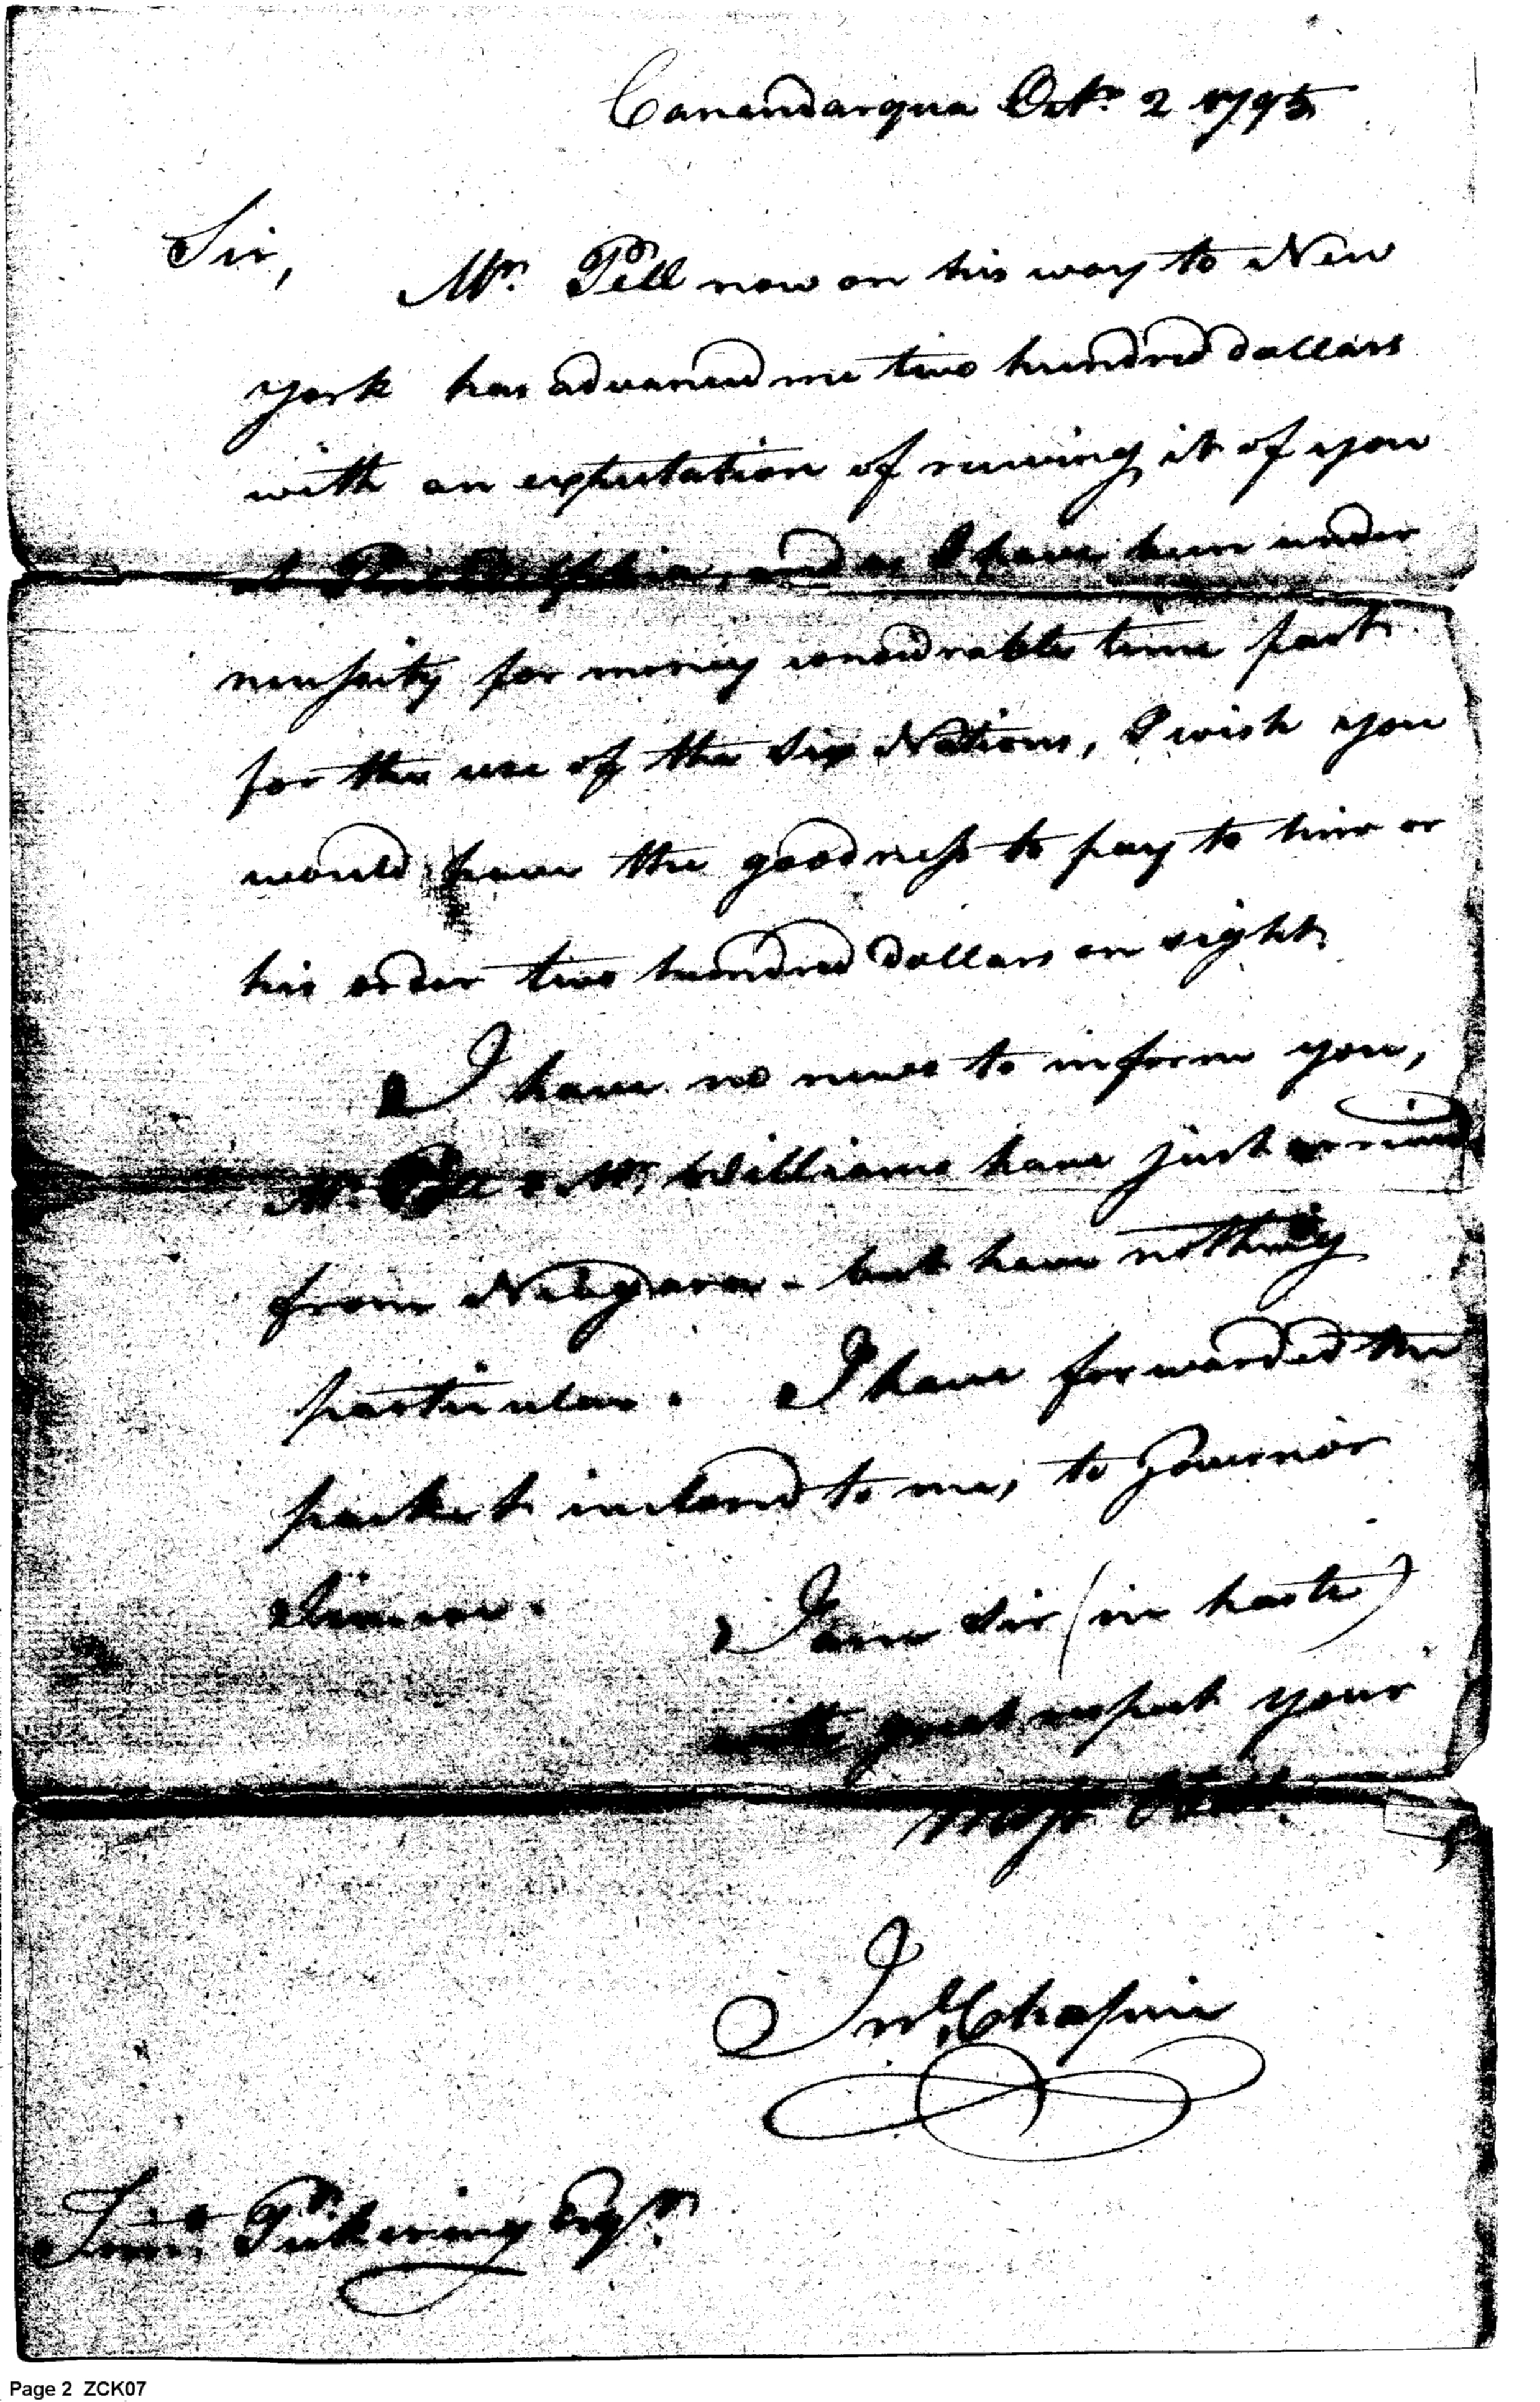 Canandarqua Octr. 2 1795
Sir,
Mr. Pell now on his way to New
york has advanced me two hundred dollars
with an expectation of receiving it of you
at Philadelphia, and as I have been under
necessity for money considrable time past
for the use of the Six Nations, I wish you
would have the goodness to pay to him or
his order two hundred dollars on sight.
I have no news to inform you,
Mr. & Mr. Williams have just arrived
from Niagara - but have nothing
particular. I have forwarded the
packet inclosed to me, to Governor
I am Sir (in haste)
with great respect your
most Obdt.
Isrl. Chapin
Timo. Pickering Esqr.
Page 2 ZCK07